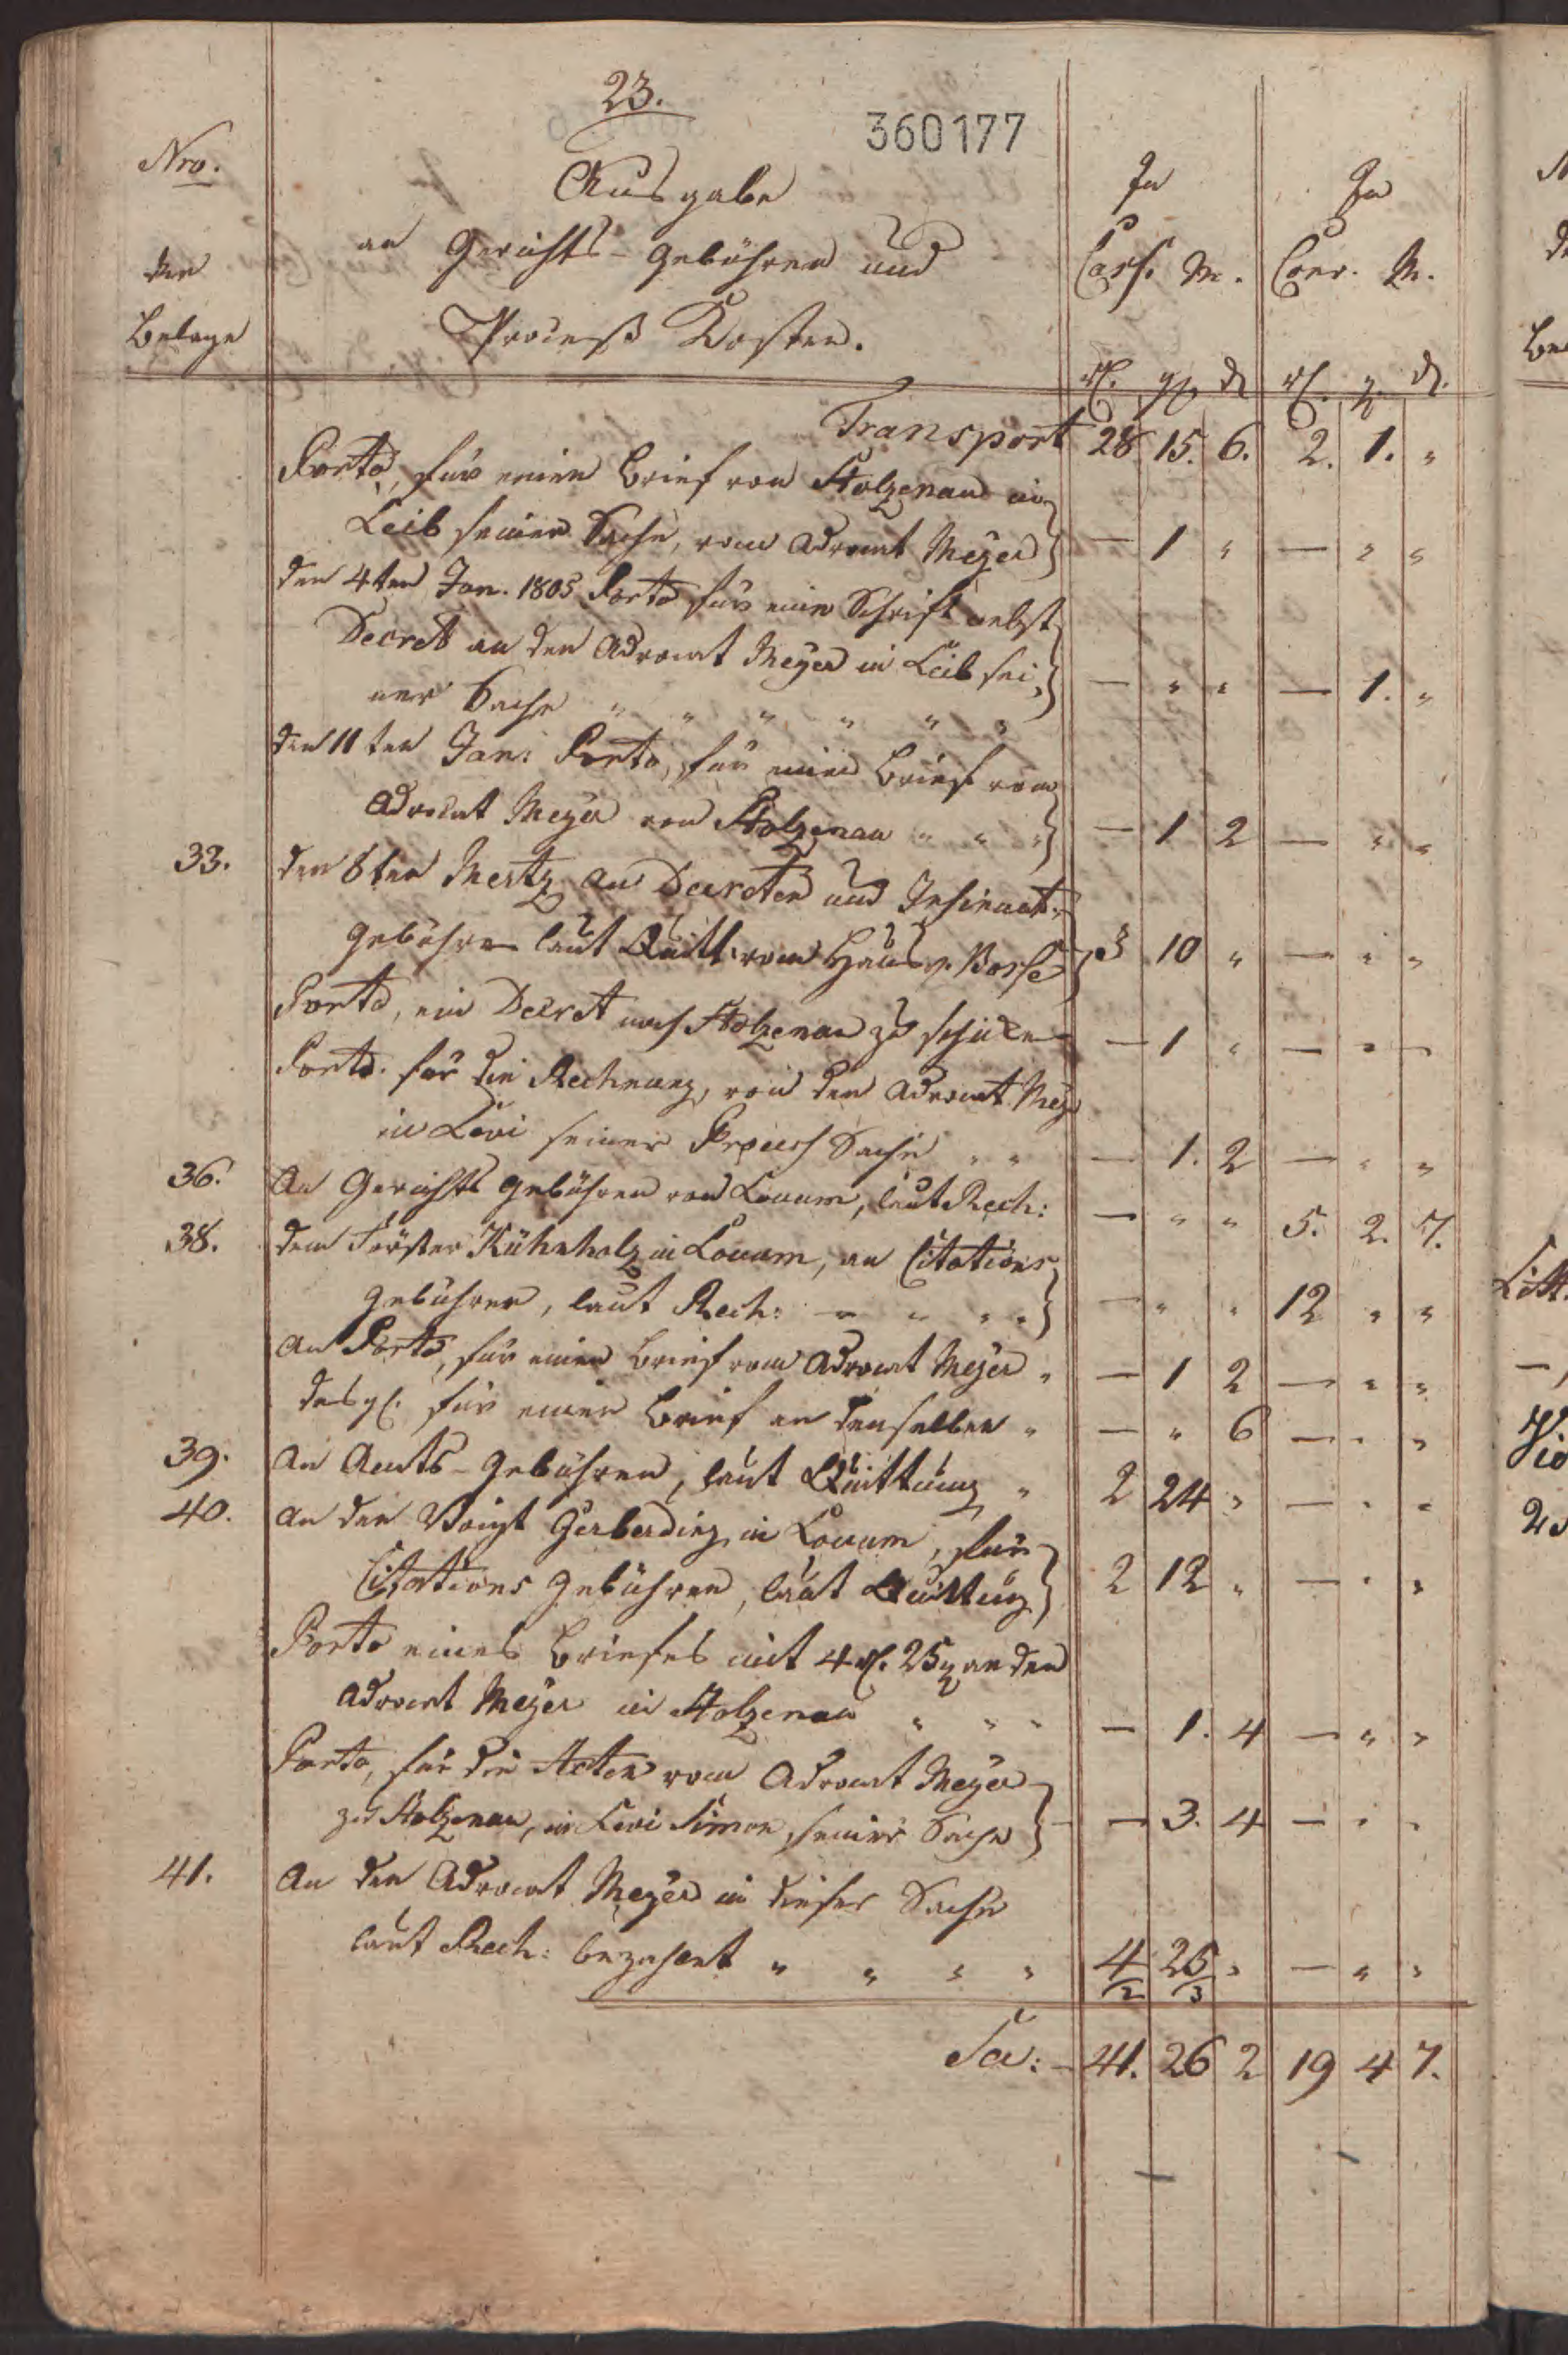 23.
360177
Nro.
der
Belege
Ausgabe
an Gerichts-Gebühren und
Proceß Kosten.
In
Cass. M.
rl. gl d
In
Conv. M.
rl. g. d.
Transport 28 15. 6. 2. 1. "
Porto, für einen Brief von Stolzenau in
Leib seiner Sache, vom Advocat Meyer — 1 " — " "
den 4ten Jan. 1805 Porto für eine Schrift nebst
Decret an den Advocat Meyer in Leib sei,
ner Sache " " " " " " — " " — 1. "
den 11ten Jan: Porto, für einen Brief vom
Advocat Meyer von Stolzenau " " " — 1 2 — " "
33. den 8ten Mertz an Decreten und Insinuat:
Gebühren laut Quitt: vom Hausv. Bosse 3 10 " — " "
Porto, ein Decret nach Stolzenau zu schicken — 1 " — " "
Porto für die Rechnung, von den Advocat Mey
in Levi seiner Process Sache " " — 1. 2 — " "
36. An Gerichts Gebühren von Loccum, laut Rech: — " " 5. 2. 7.
38. dem Förster Kühnholz in Loccum, an Citations
Gebühren, laut Rech: — " " " — " " 12 " "
An Porto, für einen Brief vom Advocat Meyer " — 1 2 — " "
desgl. für einen Brief an denselben " — " 6 — " "
39. An Amts-Gebühren, laut Quittung " 2 24 " — " "
40. An den Voigt Gerberding in Loccum, für
Citations Gebühren, laut Quittung 2 12 " — " "
Porto eines Briefes mit 4 rl. 25 g an den
Advocat Meyer in Stolzenau " " " — 1. 4 — " "
Porto, für die Acten vom Advocat Meyer
zu Stolzenau, in Levi Simon seiner Sache — 3. 4 — " "
41. An den Advocat Meyer in dieser Sache
laut Rech: bezahlt " " " " 4 25 " — " "
2 3
Sa: 41. 26 2 19 4 7.